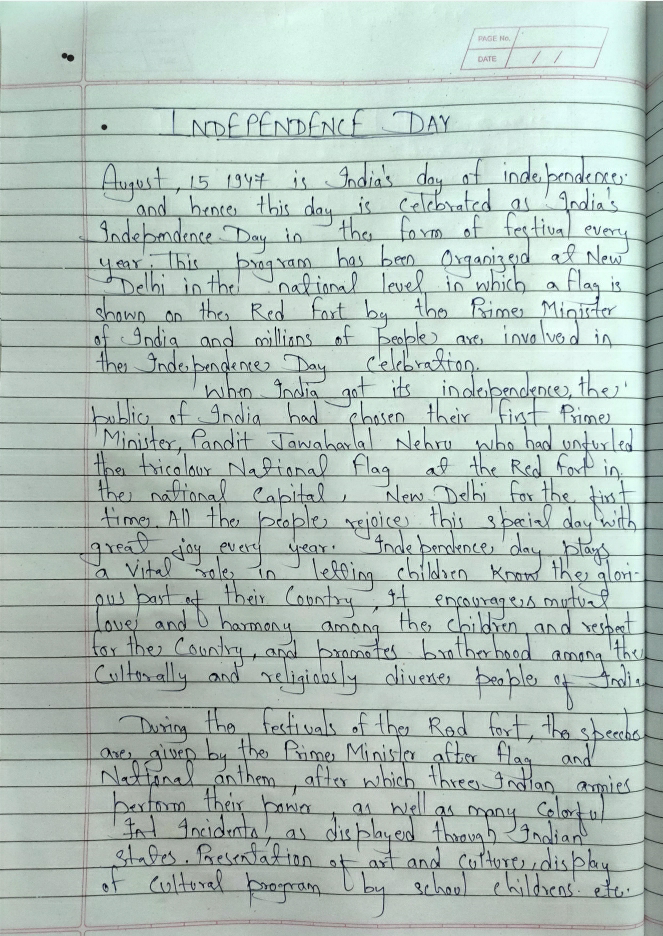 PAGE No.
DATE / /
INDEPENDENCE DAY
August, 15 1947 is India's day of independence.
and hence this day is celebrated as India's
Independence Day in the form of festival every
year. This program has been Organized at New
Delhi in the national level in which a flag is
shown on the Red Fort by the Prime Minister
of India and millions of people are involved in
the Independence Day Celebration.
When India got its independence, the
public of India had chosen their first Prime
Minister, Pandit Jawaharlal Nehru who had unfurled
the tricolour National Flag at the Red Fort in
the national Capital, New Delhi for the first
time. All the people rejoice this special day with
great joy every year. Independence day plays
a Vital role in letting children Know the glori-
ous part of their Country, It encourages mutual
love and harmony among the children and respect
for the Country, and promotes brotherhood among the
Culturally and religiously diverse people of India
During the festivals of the Red fort, the speeches
are given by the Prime Minister after flag and
National anthem, after which three Indian armies
perform their power as well as many Colorful
Incidents, as displayed through Indian
states. Presentation of art and Culture, display
of Cultural program by school childrens. etc.